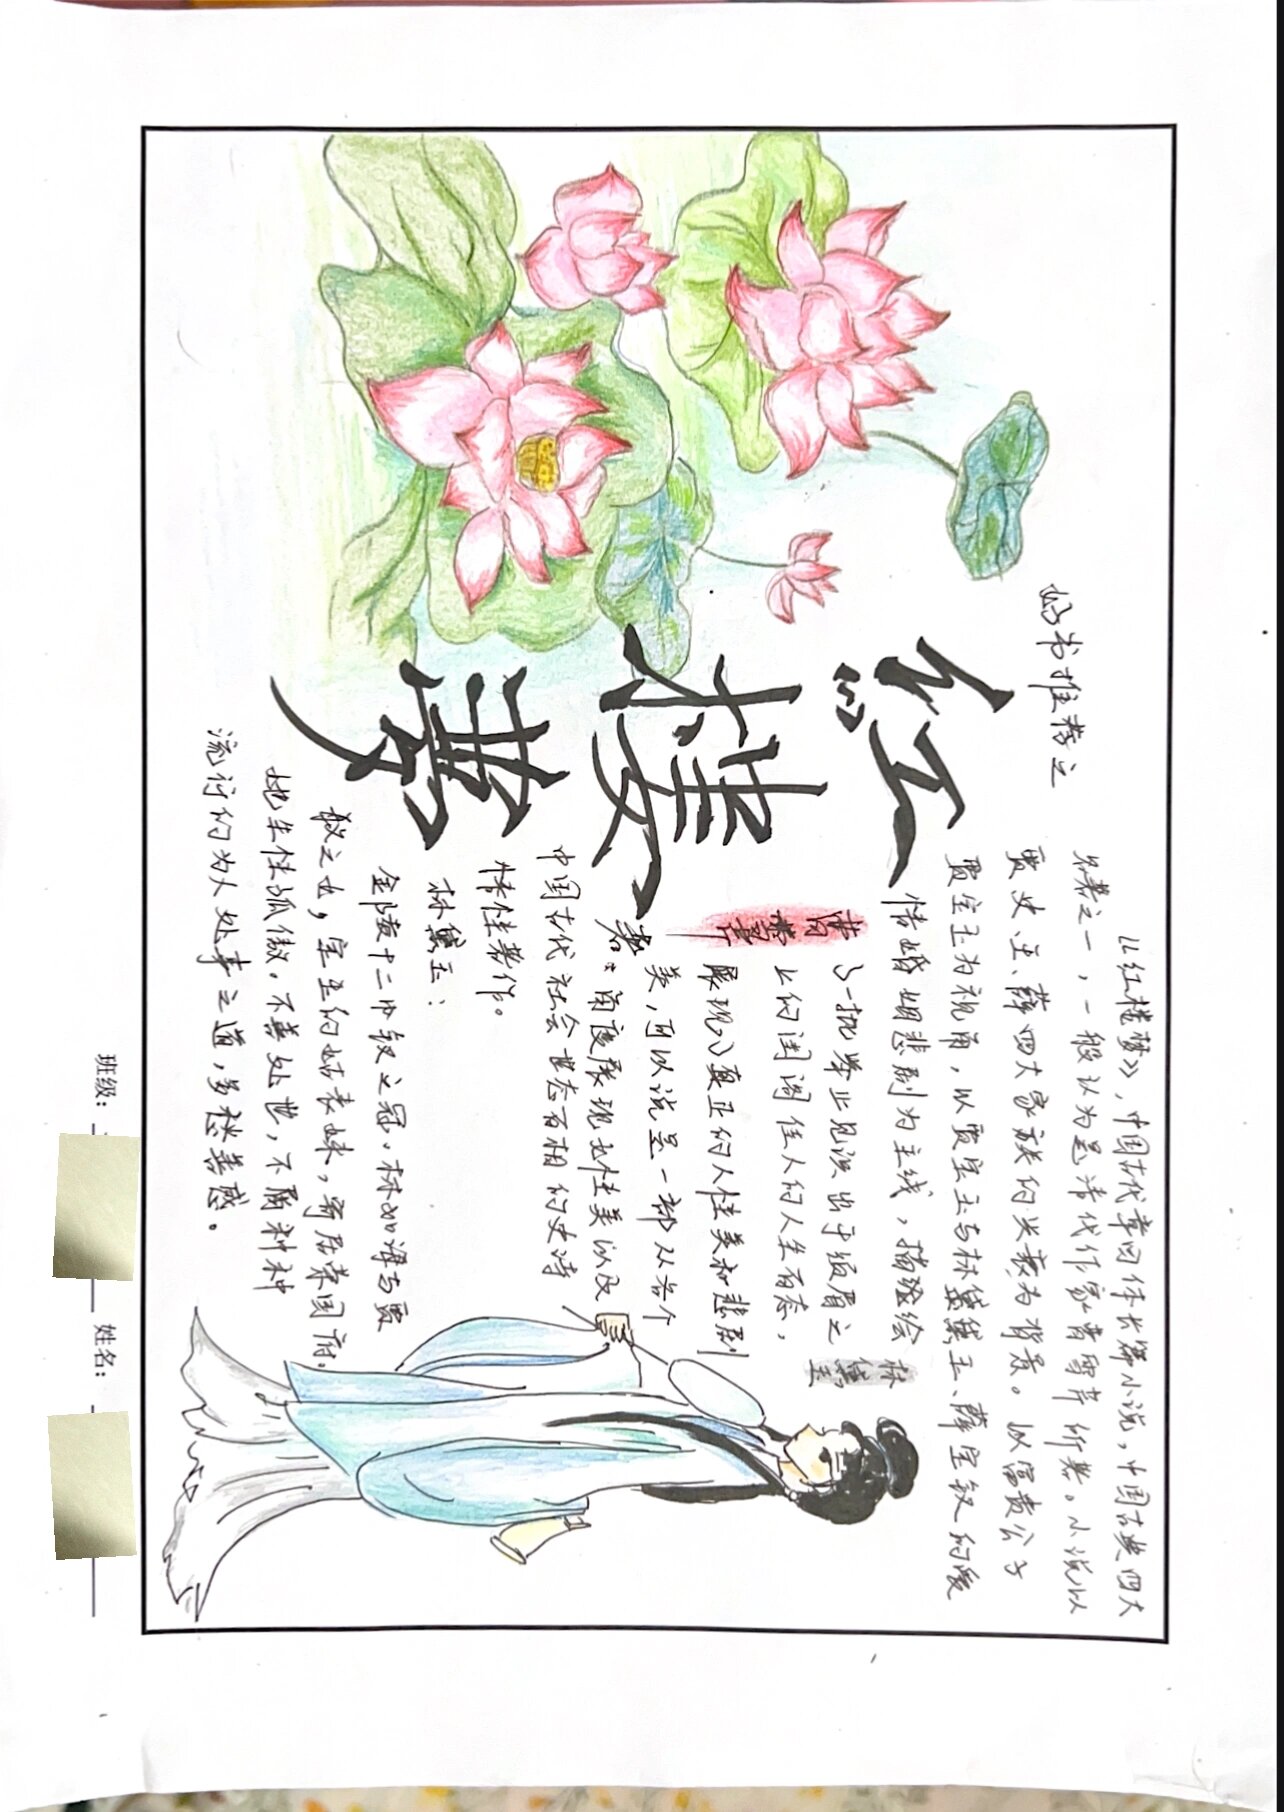 好书推荐之
红楼梦
《红楼梦》,中国古代章回体长篇小说,中国古典四大
名著之一,一般认为是清代作家曹雪芹所著。小说以
贾、史、王、薛四大家族的兴衰为背景。以富贵公子
贾宝玉为视角,以贾宝玉与林黛玉、薛宝钗的爱
情婚姻悲剧为主线,描绘
了一批举止见识出于须眉之
上的闺阁佳人的人生百态,
展现了真正的人性美和悲剧
美,可以说是一部从各个
角度展现女性美以及
中国古代社会世态百相的史诗
性著作。
曹雪芹
著:
林黛玉
林黛玉:
金陵十二钗之冠。林如海与贾
敏之女,宝玉的姑表妹,寄居荣国府。
她生性孤傲,不善处世,不屑种种
流行的为人处事之道,多愁善感。
班级:
姓名: